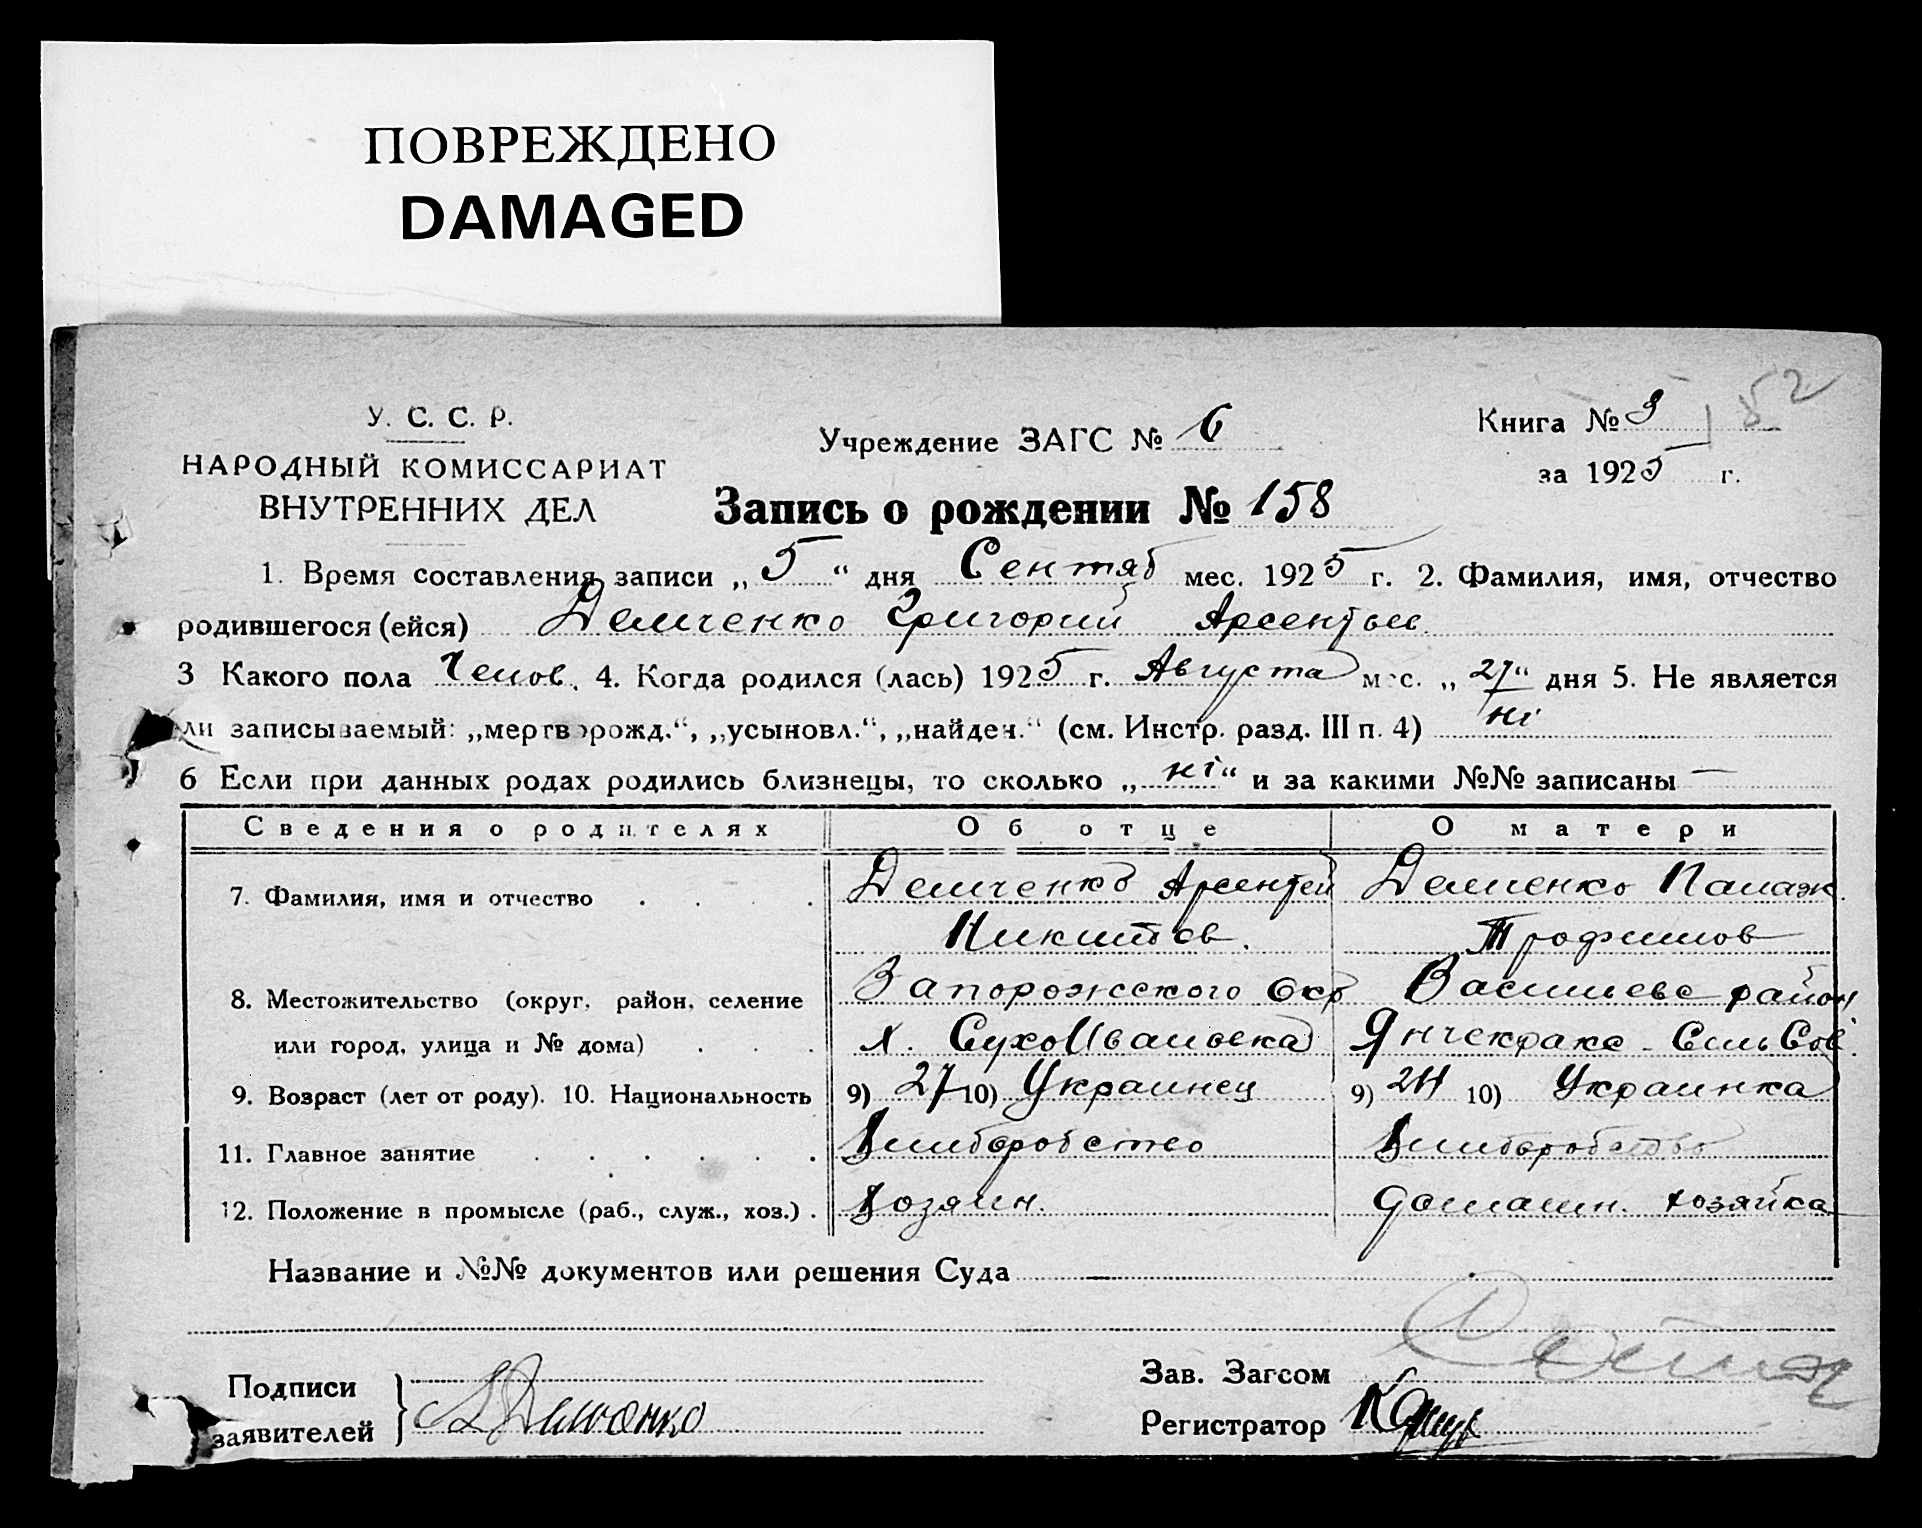 ПОВРЕЖДЕНО
DAMAGED
У. С. С. Р.
НАРОДНЫЙ КОМИССАРИАТ
ВНУТРЕННИХ ДЕЛ
Учреждение ЗАГС № 6
Книга № 3 152
за 1925 г.
Запись о рождении № 158
1. Время составления записи „5“ дня Сентяб мес. 1925 г. 2. Фамилия, имя, отчество
родившегося (ейся) Демченко Григорий Арсентьев
3 Какого пола Челов. 4. Когда родился (лась) 1925 г. Августа мес. „27“ дня 5. Не является
ли записываемый: „мертворожд.“, „усыновл.“, „найден.“ (см. Инстр. разд. III п. 4) ні
6 Если при данных родах родились близнецы, то сколько „ні“ и за какими №№ записаны —
Сведения о родителях Об отце О матери
7. Фамилия, имя и отчество Демченко Арсентей Демченко Палаж.
Никитов. Трофимов
8. Местожительство (округ, район, селение Запорожского Окр Васильевс район
или город, улица и № дома) х. СухоИвановка Янчекракс - Сель Сов.
9. Возраст (лет от роду). 10. Национальность 9) 27 10) Украинец 9) 24 10) Украинка
11. Главное занятие Хлиборобство Хлиборобство
12. Положение в промысле (раб., служ., хоз.) Хозяин. домашн. хозяйка
Название и №№ документов или решения Суда —
Подписи
заявителей
А Демченко
Зав. Загсом
Регистратор